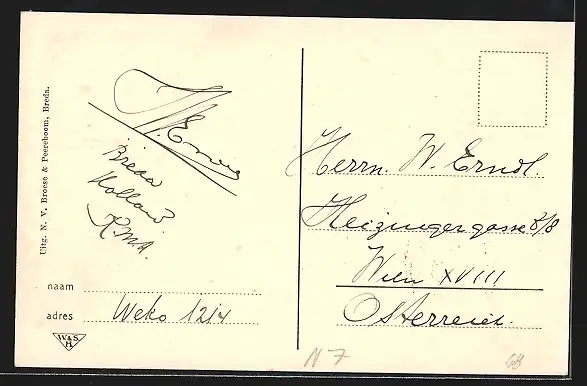 Uitg. N. V. Broese & Peereboom, Breda.
Breda
Holland
K.M.A.
naam
adres Weko 1214
W&S
H
Herrn. W. Erndl.
Heizingergasse 8/8
Wien XVIII
Österreich.
N 7